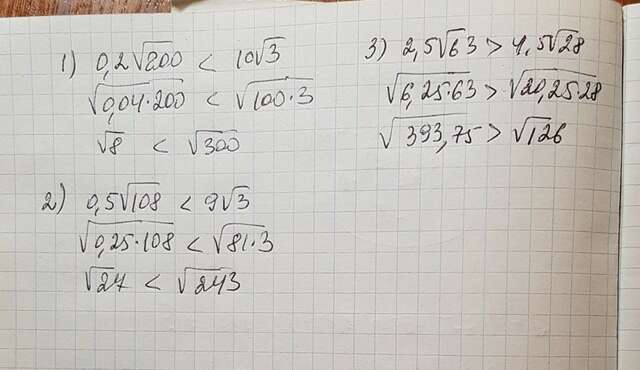 1) 0,2√200 < 10√3
√0,04·200 < √100·3
√8 < √300
2) 0,5√108 < 9√3
√0,25·108 < √81·3
√27 < √243
3) 2,5√63 > 4,5√28
√6,25·63 > √20,25·28
√393,75 > √126